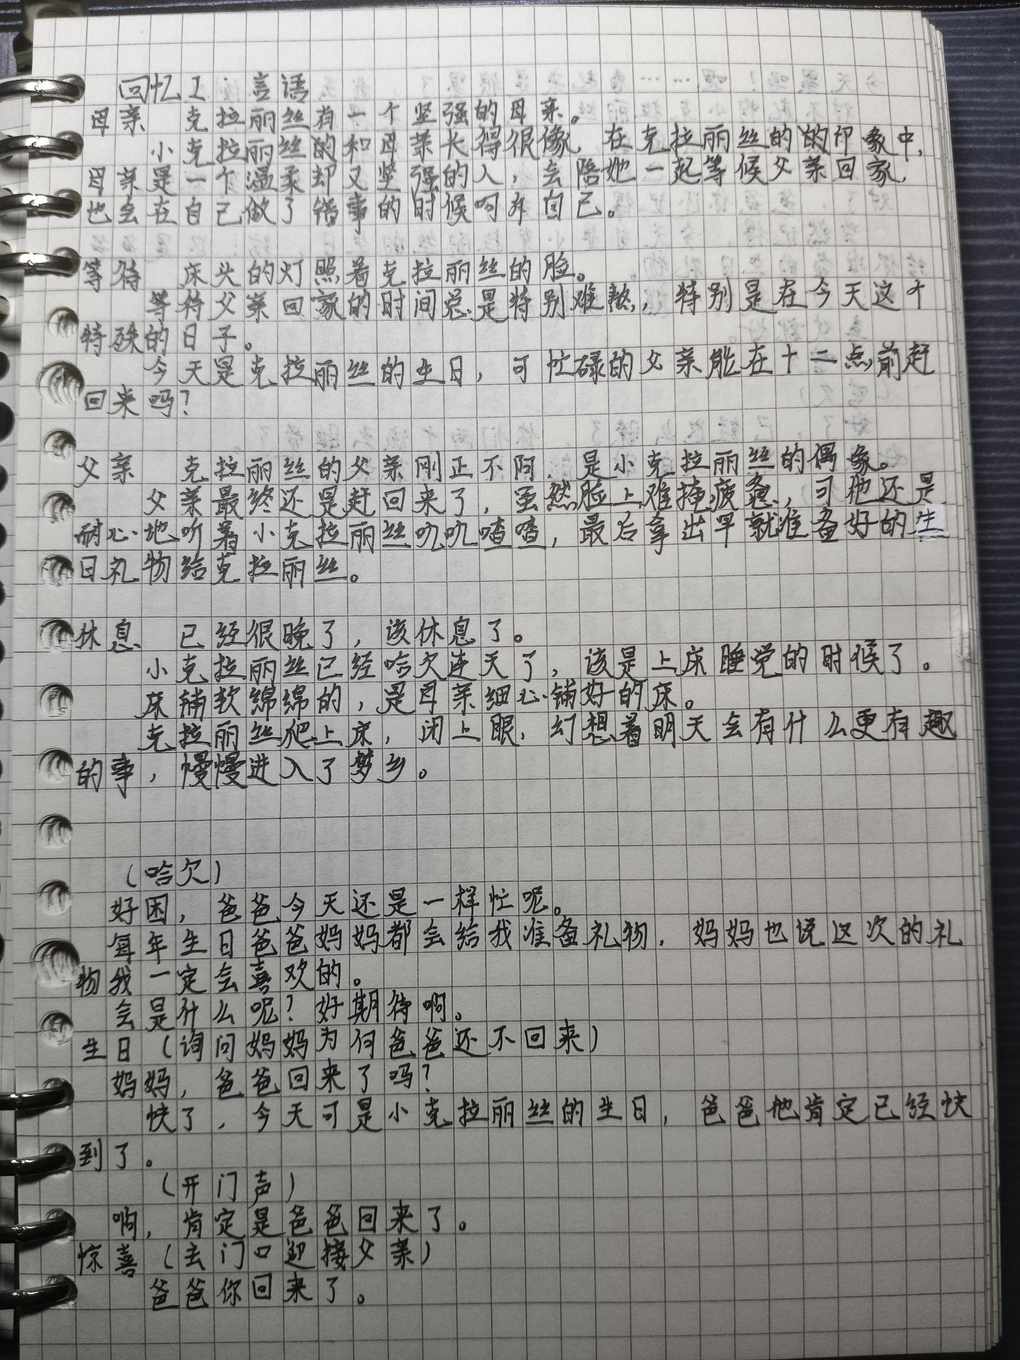 回忆 I 言语
母亲 克拉丽丝有一个坚强的母亲。
小克拉丽丝的和母亲长得很像，在克拉丽丝的的印象中，
母亲是一个温柔却又坚强的人，会陪她一起等候父亲回家，
也会在自己做了错事的时候呵斥自己。
等待 床头的灯照着克拉丽丝的脸。
等待父亲回家的时间总是特别难熬，特别是在今天这个
特殊的日子。
今天是克拉丽丝的生日，可忙碌的父亲能在十二点前赶
回来吗？
父亲 克拉丽丝的父亲刚正不阿，是小克拉丽丝的偶象。
父亲最终还是赶回来了，虽然脸上难掩疲惫，可他还是
耐心地听着小克拉丽丝叽叽喳喳，最后拿出早就准备好的生
日礼物给克拉丽丝。
休息 已经很晚了，该休息了。
小克拉丽丝已经哈欠连天了，该是上床睡觉的时候了。
床铺软绵绵的，是母亲细心铺好的床。
克拉丽丝爬上床，闭上眼，幻想着明天会有什么更有趣
的事，慢慢进入了梦乡。
（哈欠）
好困，爸爸今天还是一样忙呢。
每年生日爸爸妈妈都会给我准备礼物，妈妈也说这次的礼
物我一定会喜欢的。
会是什么呢？好期待啊。
生日（询问妈妈为何爸爸还不回来）
妈妈，爸爸回来了吗？
快了，今天可是小克拉丽丝的生日，爸爸他肯定已经快
到了。
（开门声）
哟，肯定是爸爸回来了。
惊喜（去门口迎接父亲）
爸爸你回来了。